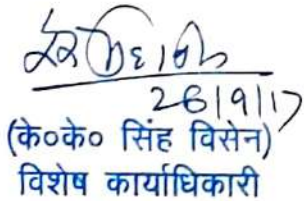 26/9/17
(के०के० सिंह विसेन)
विशेष कार्याधिकारी